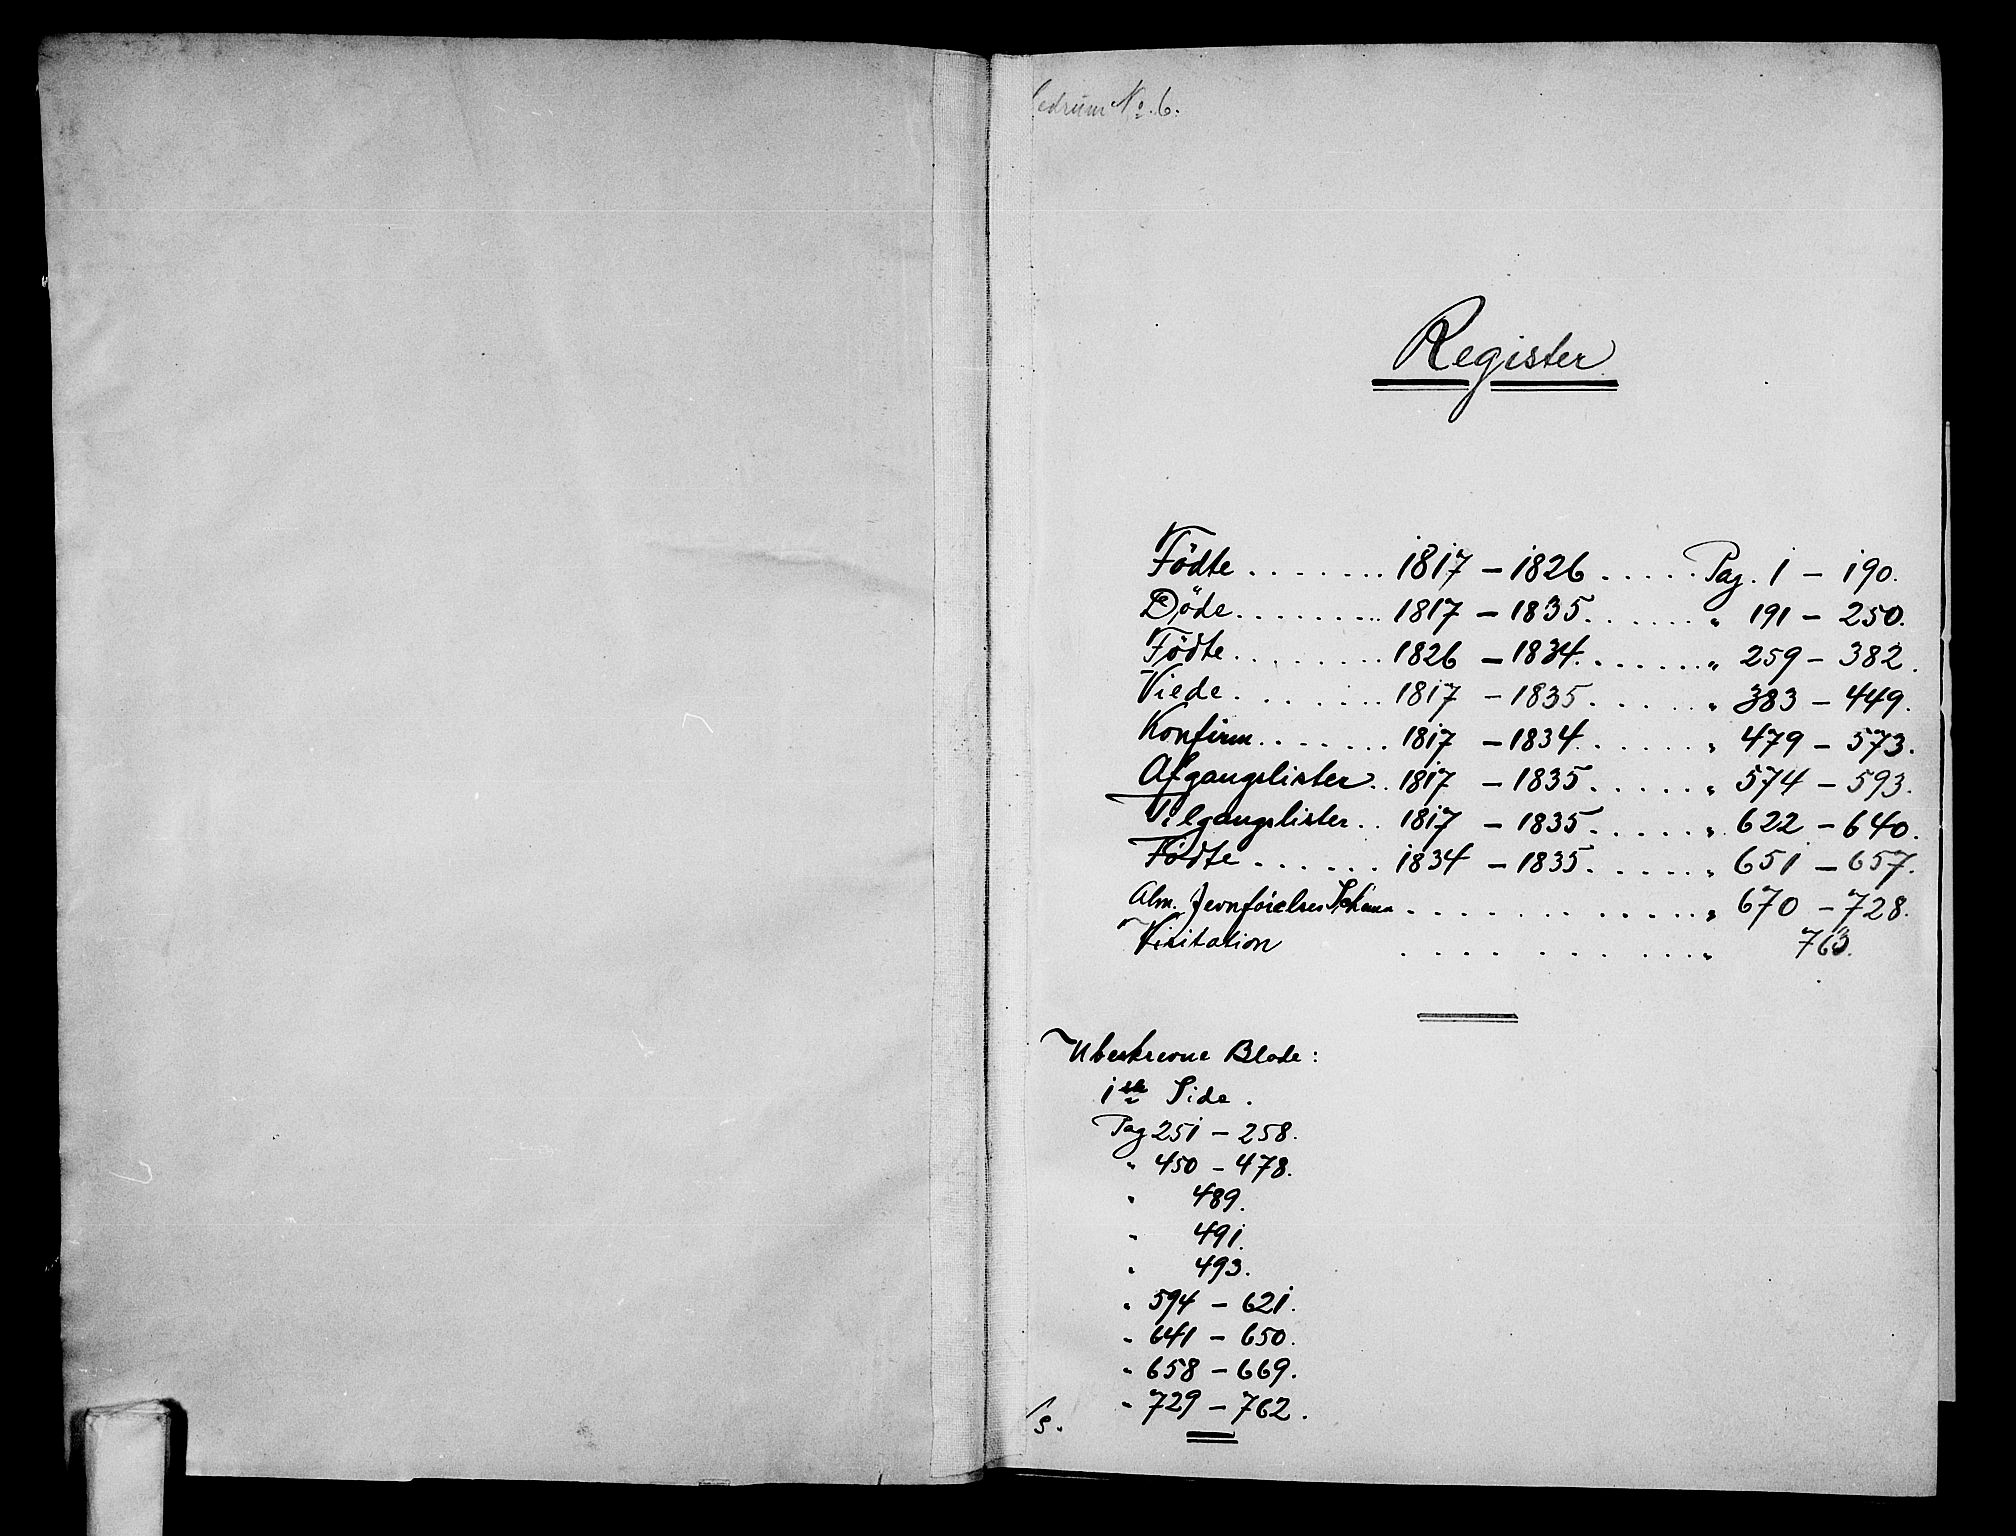 № 6.
Register
Fødte ........ 1817 – 1826 ..... Pag. 1 – 190.
Døde ......... 1817 – 1835 ...... " 191 – 250.
Fødte ........ 1826 – 1834 ...... " 259 – 382.
Viede ........ 1817 – 1835 ...... " 383 – 449.
Konfirm. ....... 1817 – 1834 ...... " 479 – 573.
Afgangslister .. 1817 – 1835 ...... " 574 – 593.
Tilgangslister .. 1817 – 1835 ...... " 622 – 640.
Fødte ....... 1834 – 1835 ...... " 651 – 657.
Alm. Jevnførelses Schema ........... " 670 – 728.
Visitation ........... " 763.
Ubeskrevne Blade:
1ste Side.
Pag 251 – 258.
" 450 – 478.
" 489.
" 491.
" 493.
" 594 – 621.
" 641 – 650.
" 658 – 669.
" 729 – 762.